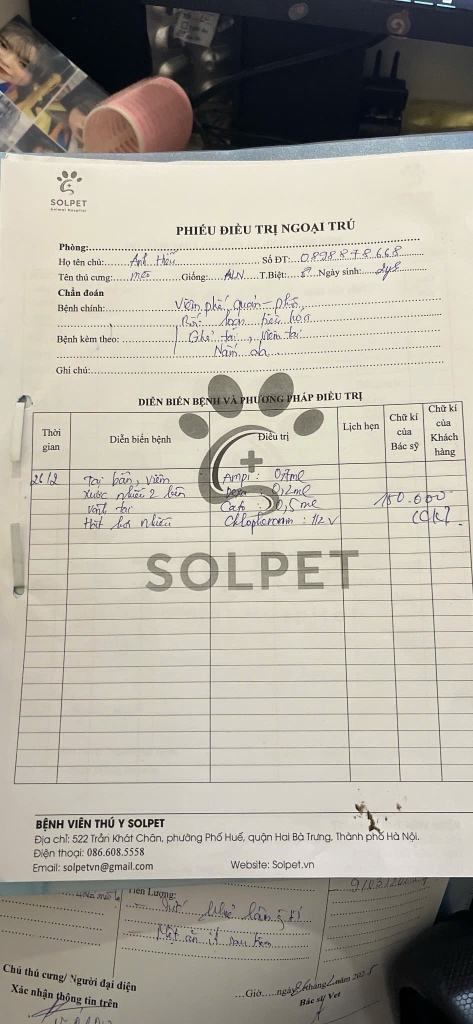 SOLPET
Animal Hospital
PHIẾU ĐIỀU TRỊ NGOẠI TRÚ
Phòng:
Họ tên chủ: Anh Hiếu Số ĐT: 0898878668
Tên thú cưng: mèo Giống: ALN T.Biệt: Ngày sinh:
Chẩn đoán
Bệnh chính: Viêm phế quản - phổi
Rối loạn tiêu hóa
Bệnh kèm theo: Ghẻ tai, viêm tai
Nấm da
Ghi chú:
DIỄN BIẾN BỆNH VÀ PHƯƠNG PHÁP ĐIỀU TRỊ
Thời gian Diễn biến bệnh Điều trị Lịch hẹn Chữ kí của Bác sỹ Chữ kí của Khách hàng
26/2 Tai bẩn, viêm Ampi: 0,7ml
xước nhiều 2 bên Dexa: 0,2ml
vành tai Cafo: 0,5ml 150.000
Hắt hơi nhiều : 1/2 v (CK)
SOLPET
BỆNH VIỆN THÚ Y SOLPET
Địa chỉ: 522 Trần Khát Chân, phường Phố Huế, quận Hai Bà Trưng, Thành phố Hà Nội.
Điện thoại: 086.608.5558
Email: solpetvn@gmail.com Website: Solpet.vn
Tiên Lượng:
Chủ thú cưng/ Người đại diện
Xác nhận thông tin trên
...Giờ.....ngày 26 tháng 2 năm 202
Bác sỹ Vet